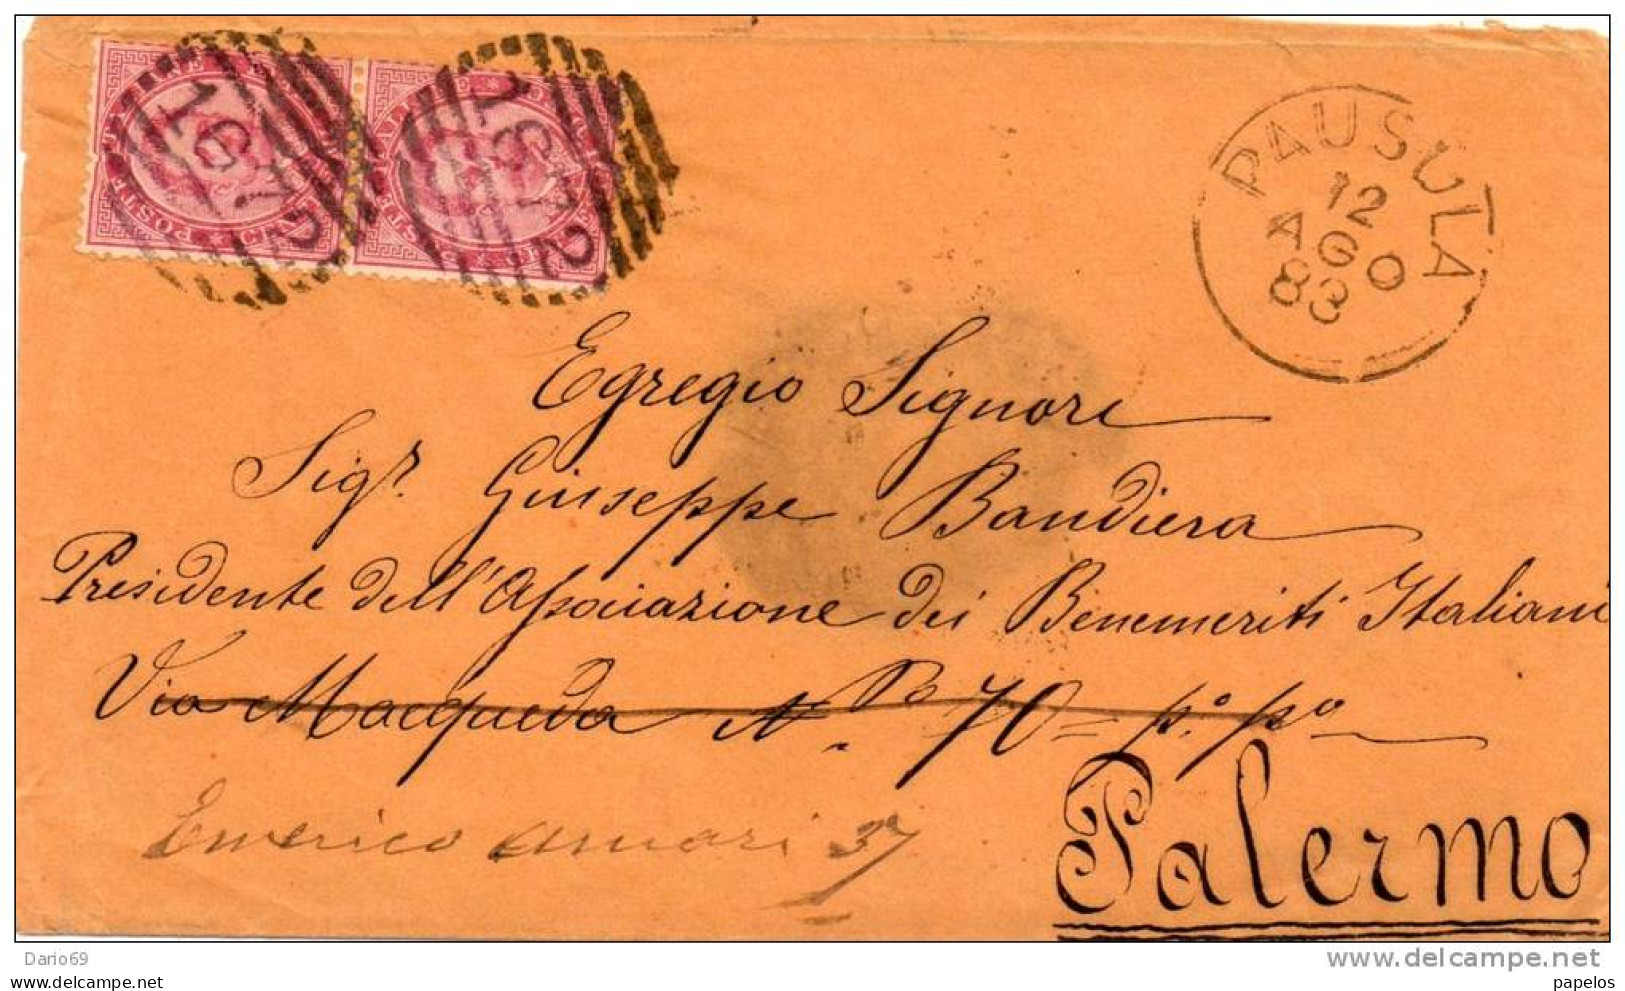 1672
1672
PAUSULA
12
AGO
83
Egregio Signore
Sigr. Giuseppe Bandiera
Presidente dell'Associazione dei Benemeriti Italiani
Via Macqueda N. 70 = p.o p.o
Emerico Amari 37
Palermo
Dario69
www.delcampe.net
papelos